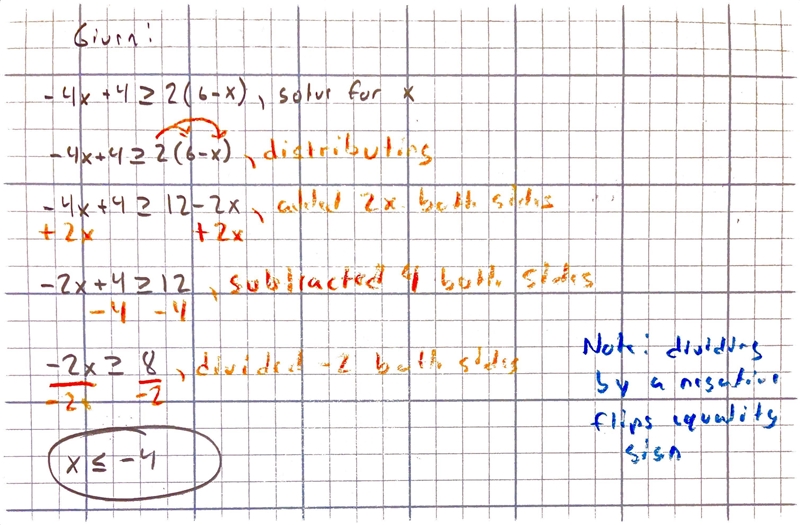 Given:
-4x + 4 ≥ 2(6-x), solve for x
-4x+4 ≥ 2(6-x), distributing
-4x+4 ≥ 12-2x, added 2x both sides
+2x +2x
-2x+4 ≥ 12, subtracted 4 both sides
-4 -4
-2x ≥ 8, divided -2 both sides
-2x -2
x ≤ -4
Note: dividing
by a negative
flips equality
sign